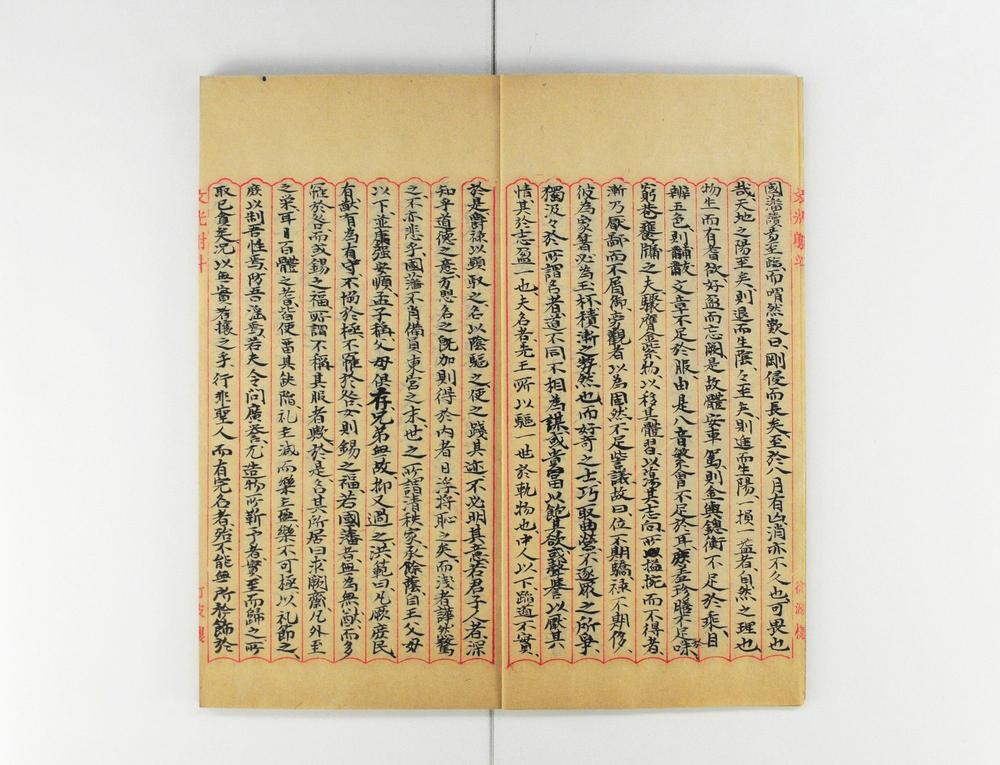 國藩讀易至臨而喟然歎曰、剛侵而長矣、至於八月有凶、消亦不久也、可畏也
哉、天地之陽至矣、則退而生陰、陰之至矣、則進而生陽、一損一益者、自然之理也
物生而有耆欲、好盈而忘闕、是故體安車駕、則金輿鏓衡不足於乘、目
辨五色、則黼黻文章不足於服、由是八音繁會不足於耳、庶羞珍膳不足於味、
窮巷甕牖之夫、驟膺金紫、物以移其體、習以蕩其志、向所搤捥而不得者、
漸乃厭鄙而不屑御、旁觀者以為固然、不足訾議、故曰位不期驕、祿不期侈、
彼為象箸、必為玉杯、積漸之勢然也、而好奇之士、巧取曲營、不逐眾之所爭、
獨汲々於所謂名者、道不同不相為謀、或貴富以飽其欲、或聲譽以厭其
情、其於志盈一也、夫名者、先王所以驅一世於軌物也、中人以下、蹈道不實、
於是爵祿以顯馭之、名以陰驅之、使之踐其迹、不必明其意、若君子人者、深
知乎道德之意、方懼名之既加、則得於內者日浮、將恥之矣、而淺者譁然騖
之、不亦悲乎、國藩不肖、備員東宮之末、世之所謂清秩、家承餘蔭、自王父母
以下、並康強安順、孟子稱父母俱存、兄弟無故、抑又過之、洪範曰、凡厥庶民
有猷有為有守、不協於極、不罹於咎、女則錫之福、若國藩者、無為無猷、而多
罹於咎、而或錫之福、所謂不稱其服者歟、於是名其所居曰求闕齋、凡外至
之榮、耳目百體之耆、皆使留其缺陷、礼主減而樂主盈、樂不可極、以礼節之、
庶以制吾性焉、防吾淫焉、若夫令問廣譽、尤造物所靳予者、實至而歸之、所
取已貪矣、況以無實者攘之乎、行非聖人而有完名者、殆不能無所矜飾於